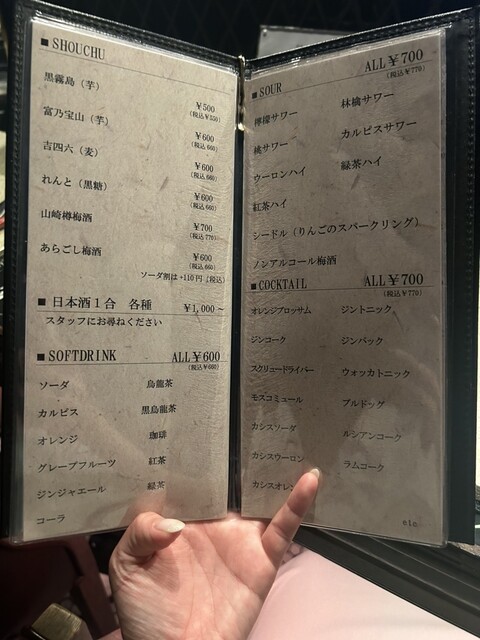 ■ SHOUCHU
黒霧島（芋）
¥500
(税込¥550)
富乃宝山（芋）
¥600
(税込660)
吉四六（麦）
¥600
(税込660)
れんと（黒糖）
¥600
(税込660)
山崎樽梅酒
¥700
(税込770)
あらごし梅酒
¥600
(税込660)
ソーダ割は+110円（税込）
■ 日本酒１合 各種 ¥1,000～
スタッフにお尋ねください
■ SOFTDRINK ALL¥600
(税込¥660)
ソーダ 烏龍茶
カルピス 黒烏龍茶
オレンジ 珈琲
グレープフルーツ 紅茶
ジンジャエール 緑茶
コーラ
■ SOUR ALL¥700
(税込¥770)
檸檬サワー 林檎サワー
桃サワー カルピスサワー
ウーロンハイ 緑茶ハイ
紅茶ハイ
シードル（りんごのスパークリング）
ノンアルコール梅酒
■ COCKTAIL ALL¥700
(税込¥770)
オレンジブロッサム ジントニック
ジンコーク ジンバック
スクリュードライバー ウォッカトニック
モスコミュール ブルドッグ
カシスソーダ ルシアンコーク
カシスウーロン ラムコーク
カシスオレン
etc